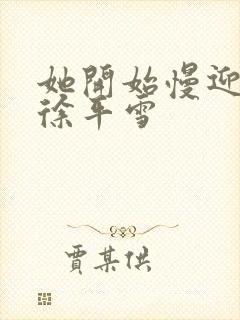 她開始慢迎
徐平雪
賈某供